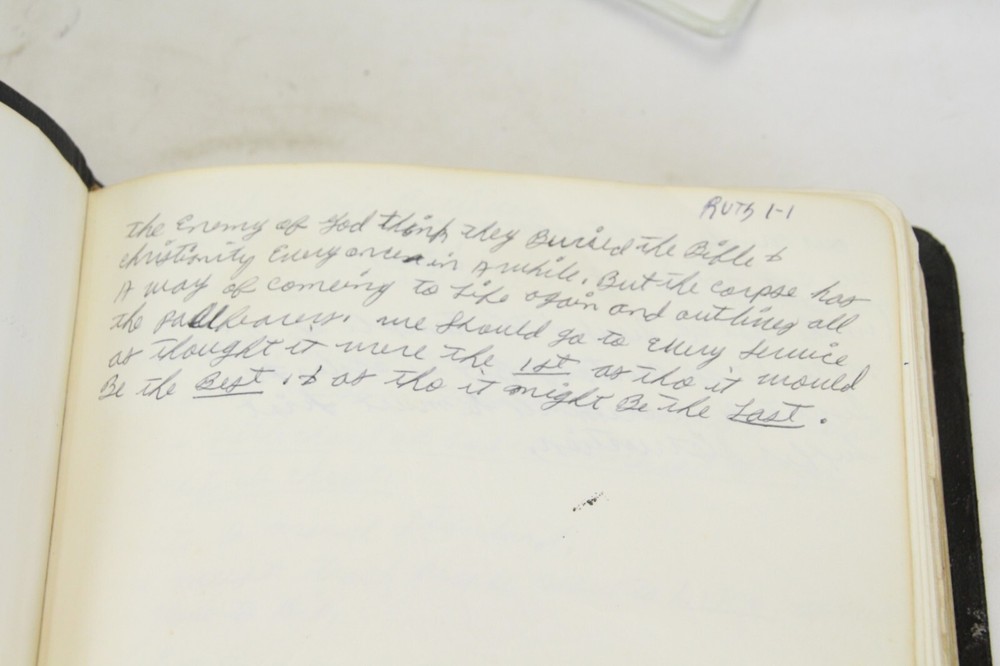 RUTH 1-1
the Enemy of God think they Buried the Bible &
christinity Every once in Awhile. But the corpse has
A way of comeing to life again and outlines all
the pallbearers. we should go to Every service
as thought it were the 1st as tho it would
Be the Best. & as tho it might Be the Last.